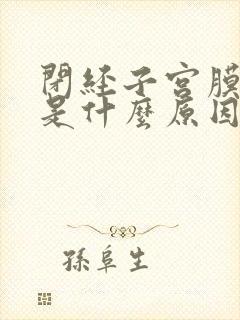 閉経子宮膜
是什麼原因
孫阜生